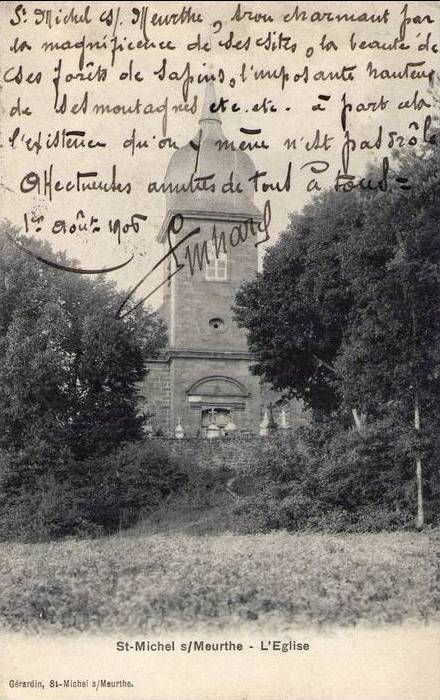 St Michel s/. Meurthe, trou charmant par
la magnificence de ses sites, la beauté de
ses forêts de sapins, l'imposante hauteur
de ses montagnes etc. etc. à part cela
l'existence qu'on y mène n'est pas drôle
Affectueuses amitiés de tous à tous =
1er Août 1906
St-Michel s/Meurthe - L'Eglise
Gérardin, St-Michel s/Meurthe.